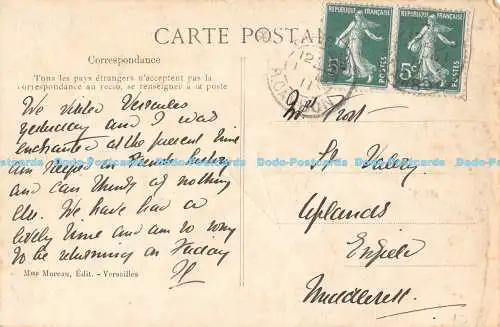 CARTE POSTALE
Correspondance
Tous les pays étrangers n'acceptent pas la
correspondance au recto, se renseigner à la poste
We visited Versailles
yesterday and I was
enchanted at the present time
am steeped in French history
and can think of nothing
else. We have had a
lovely time and am so sorry
to be returning on Friday
REPUBLIQUE FRANÇAISE
5c POSTES
REPUBLIQUE FRANÇAISE
5c POSTES
Prost
St Valery
Uplands
Enfield
Middlesex
Mme Moreau, Édit. - Versailles
Dodo-Postcards Dodo-Postcards Dodo-Postcards Dodo-Postcards Dodo-Postcards